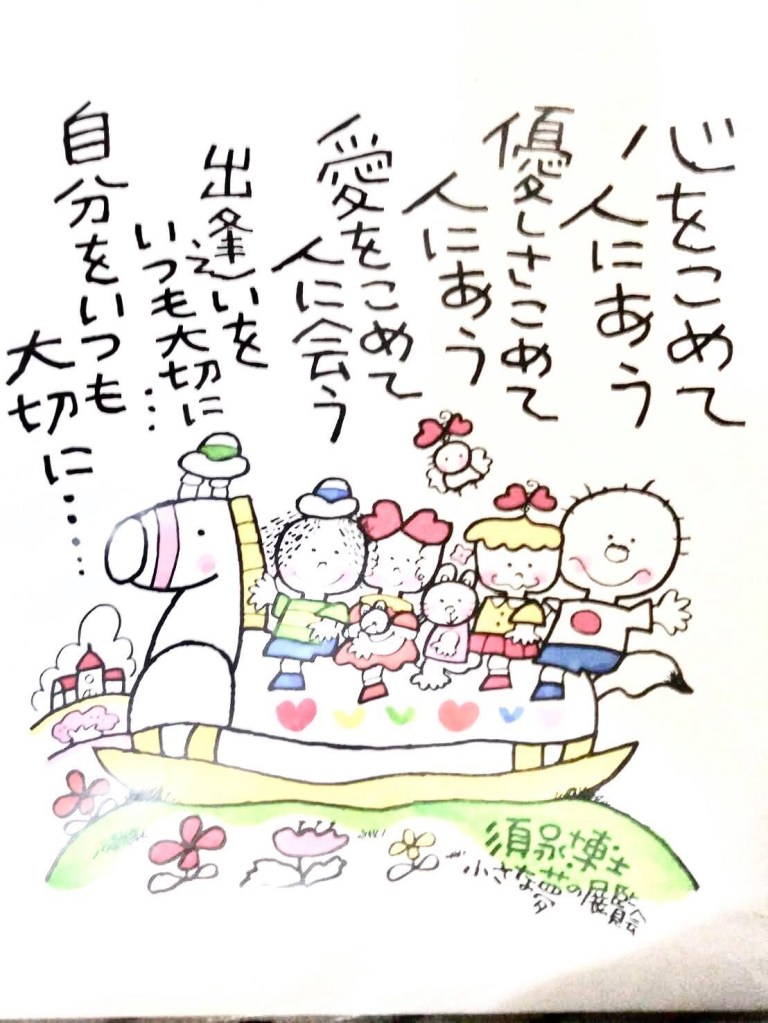 心をこめて
人にあう
優しさこめて
人にあう
愛をこめて
人に会う
出逢いを
いつも大切に…
自分をいつも
大切に……
須永博士
小さな夢の展覧会